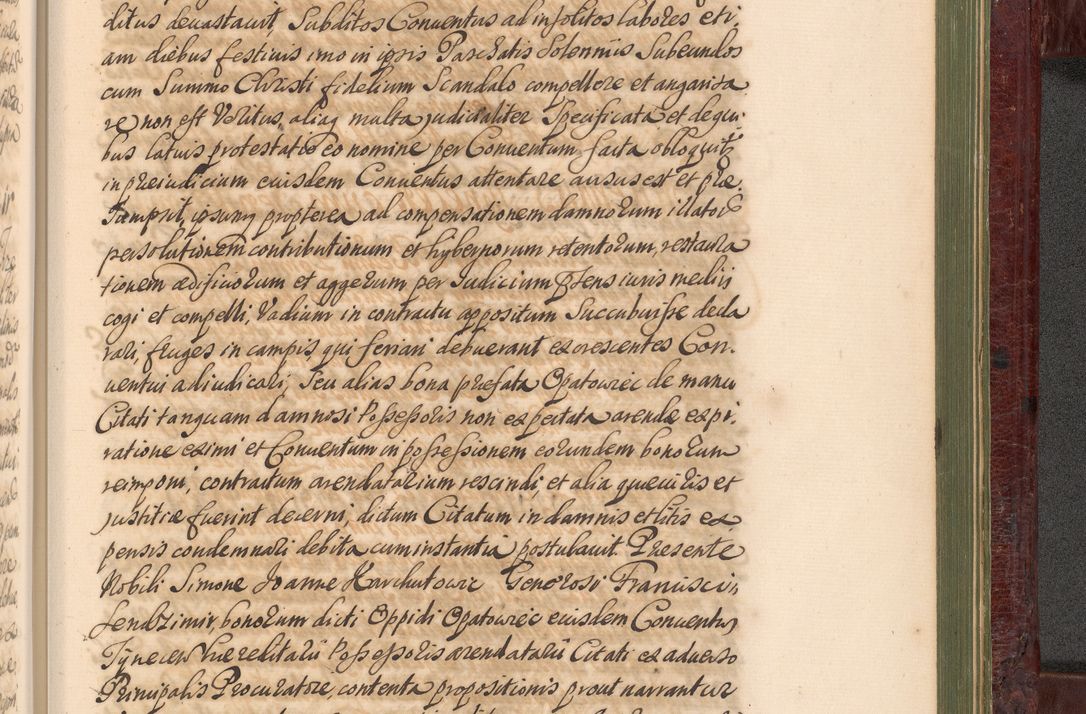 ditus deuastauit, Subditos Conuentus ad insolitos labores eti„
am diebus festiuis imo in ipsis Paschatis Solenniis Subeundos
cum Summo Christi fidelium Scandalo compellere et angariza
re non est Veritus, aliaq multa judicialiter Specificata et de qui„
bus latius protestatio eo nomine per Conuentum facta obloquit̃
in præiudicium eiusdem Conuentus attentare ausus est et præ„
sumpsit, ipsumq propterea ad compensationem damnorum illator
persolutionem contributionum et hybernorum retentorum, restaura
tionem ædificiorum et aggerum per Judicium p̃sens iuris mediis
cogi et compelli, Vadium in contractu appositum Succubuisse decla
rari, fruges in campis, qui seriari debuerant excrescentes Con„
uentui adiudicari, Seu alias bona præfata Opatowiec de manu
Citati tanquam damnosi Possessoris non expectata arendæ expi„
ratione eximi et Conuentum in possessionem eorundem bonorum
reimponi, contractum arendatarium rescindi, et alia quæ iuris et
justitiæ fuerint decerni, dictum Citatum in damnis et litis ex„
pensis condemnari debita cum instantia postulauit. Præsente
Nobili Simone Joanne Karchutowic Generosi Francisci„
Sendzimir bonorum dicti Oppidi Opatowiec eiusdem Conuentus
Tynecen hæreditarii Possessoris arendatarii Citati ex aduerso
Principalis Procuratore, contenta propositionis prout narrantur